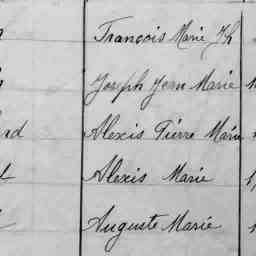 François Marie Jh
Joseph Jean Marie
rd Alexis Pierre Marie
Alexis Marie
Auguste Marie